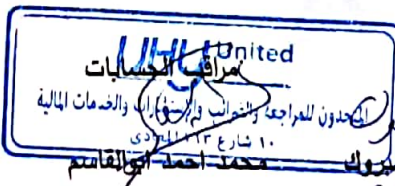 UHY United
مراقب الحسابات
المتحدون للمراجعة والضرائب والاستشارات والخدمات المالية
١٠ شارع ٢١٣ المعادى
مبروك محمد احمد ابوالقاسم